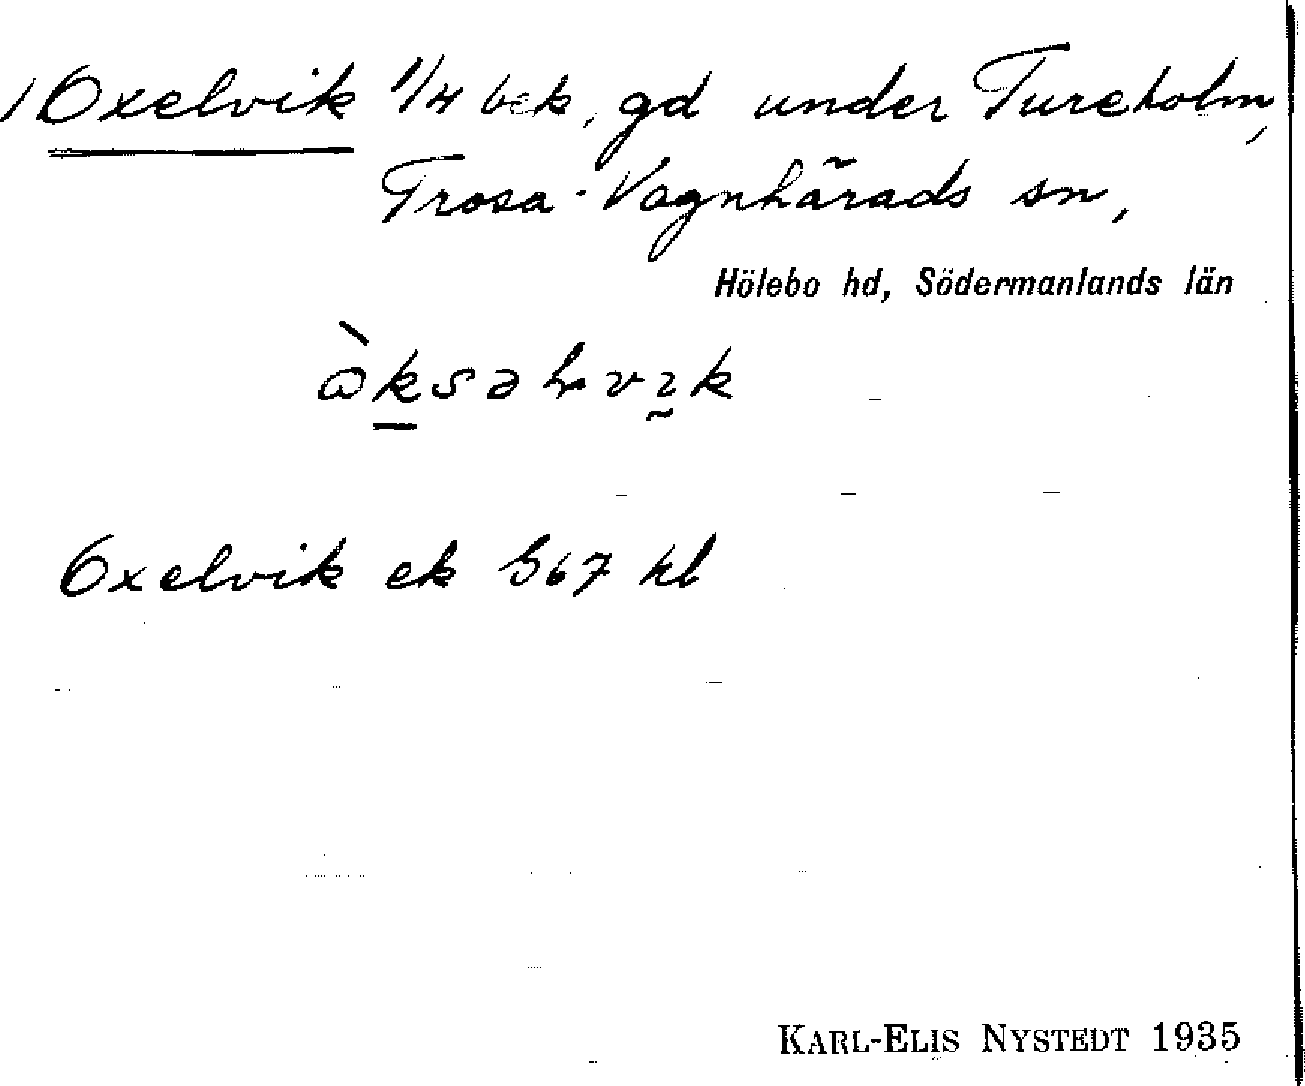 Oxelvik 1/4 bek, gd under Tureholm,
Trosa-Vagnhärads sn,
Hölebo hd, Södermanlands län
Oxelvik ek 567 kl
KARL-ELIS NYSTEDT 1935